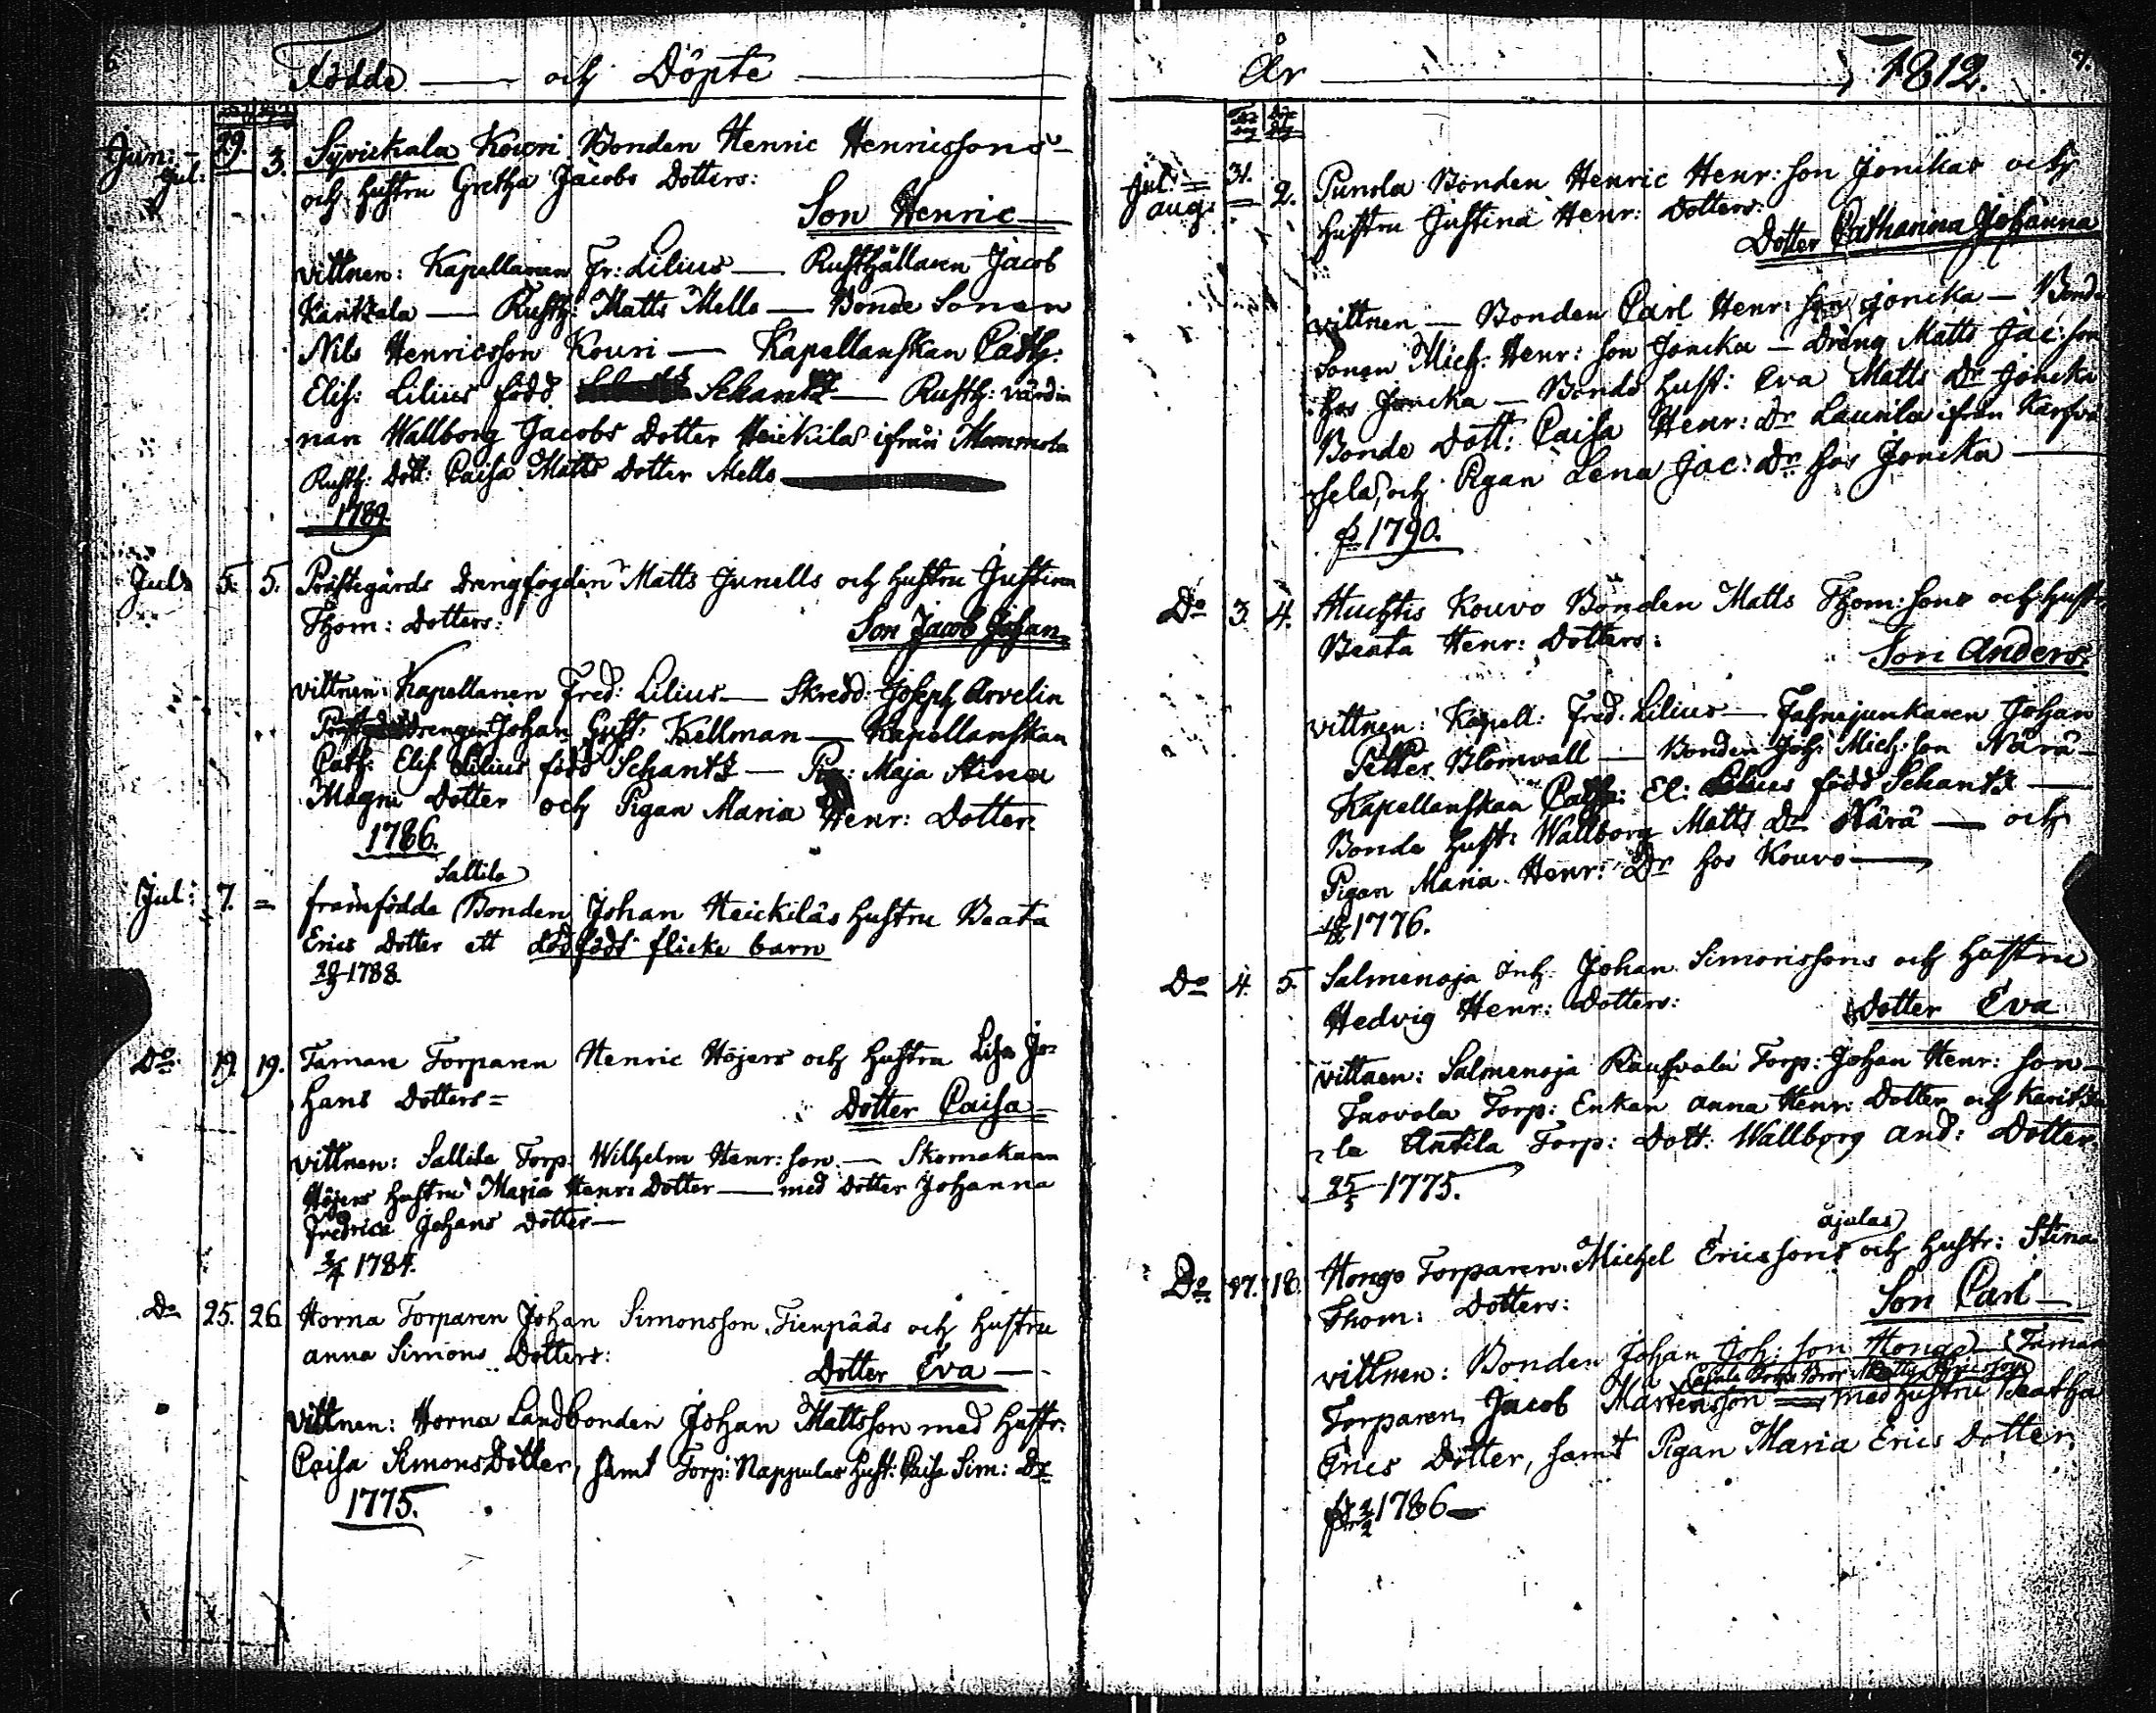 6
Födde och Döpte
Jun: 29. Syvickala Kouri Bonden Henric Henricssons
Jul: 3. och hustru Gretha Jacobs Dotters:
Son Henric
vittnen: Kapellanen Fr: Lilius — Rusthållaren Jacob
Kantzala — Rusth: Matts Mello — Bonde Sonen
Nils Henricsson Kouri — Kapellanskan Cath:
Elis: Lilius född Schantz — Rusth: värdin
nan Wallborg Jacobs Dotter Heickilas ifrån Mammola
Rusth: Dott: Caisa Matts Dotter Mello
1789.
Jul: 5. 5. Prästegårds drengfogden Matts Junells och hustru Justina
Thom: Dotters:
Son Jacob Johan
vittnen: Kapellanen Fred: Lilius — Skredd: Joseph Arvelin
drengen Johan Gust: Kellman — Kapellanskan
Cath: Elis: Lilius född Schantz — Pig: Maja Stina
Magni Dotter och Pigan Maria Henr: Dotter
1786.
Sallila
Jul: 7. = framfödde Bonden Johan Heickiläs hustru Beata
Erics Dotter ett dödfödt flicke barn
1788.
Do 19. 19. Tamare Torparen Henric Höjers och hustru Lisa Jo=
hans Dotters=
Dotter Caisa
vittnen: Sallila Torp: Wilhelm Henr: son — Skomakaren
Höjers hustru Maria Henr: Dotter — med dotter Johanna
Fredrica Johans dotter —
1784.
Do 25. 26 Horna Torparen Johan Simonsson Tienpääs och hustru
anna Simons Dotters:
Dotter Eva —
Vittnen: Horna Landbonden Johan Mattsson med hustr:
Caisa Simons Dotter, samt Torp: Nappulas hust: Caisa Sim: Dr
1775.
År 1812.
7.
Jul: = 31. Punola Bonden Henric Henr: son Jonckas och
aug: = 2. hustru Justina Henr: Dotters:
Dotter Catharina Johanna
vittnen — Bonden Carl Henr: son Joncka — Bonde
Sonen Mich: Henr: son Joncka — Dräng Matts Jac: son
hos Joncka — Bonde hust: Eva Matts Dr Joncka
Bonde Dott: Caisa Henr: Dr Laurila ifrån Karhva
sela, och Pigan Lena Jac: Dr hos Joncka —
1790.
Do 3. 4. Huchtis Kouvo Bonden Matts Thom: sons och hustr
Beata Henr: Dotters:
Son Anders
vittnen: Kapell: Fred. Lilius — Fahnejunkaren Johan
Petter Blomvall — Bonden Joh: Mich: son Närä —
Kapellanskan Cath: El: Lilius född Schantz —
Bonde hust: Wallborg Matts Dr Närä — och
Pigan Maria Henr: Dr hos Kouvo —
1776.
Do 4. 5. Salmenoja Inh: Johan Simonssons och hustru
Hedvig Henr: Dotters:
Dotter Eva
vittnen: Salmenoja Torp: Johan Henr: son —
Torp: Enkan Anna Henr: Dotter och Kantza
la Antila Torp: Dott: Wallborg And: Dotter
25/5 1775.
äjälas
Do 17. 18. Hongo Torparen Michel Ericssons och hustr: Stina
Thom: Dotters:
Son Carl —
vittnen: Bonden Johan Joh: son Hongo — (Tamar
Torparen Jacob Mårtensson — med hustru Beatha
Erics Dotter, samt Pigan Maria Erics Dotter
1786